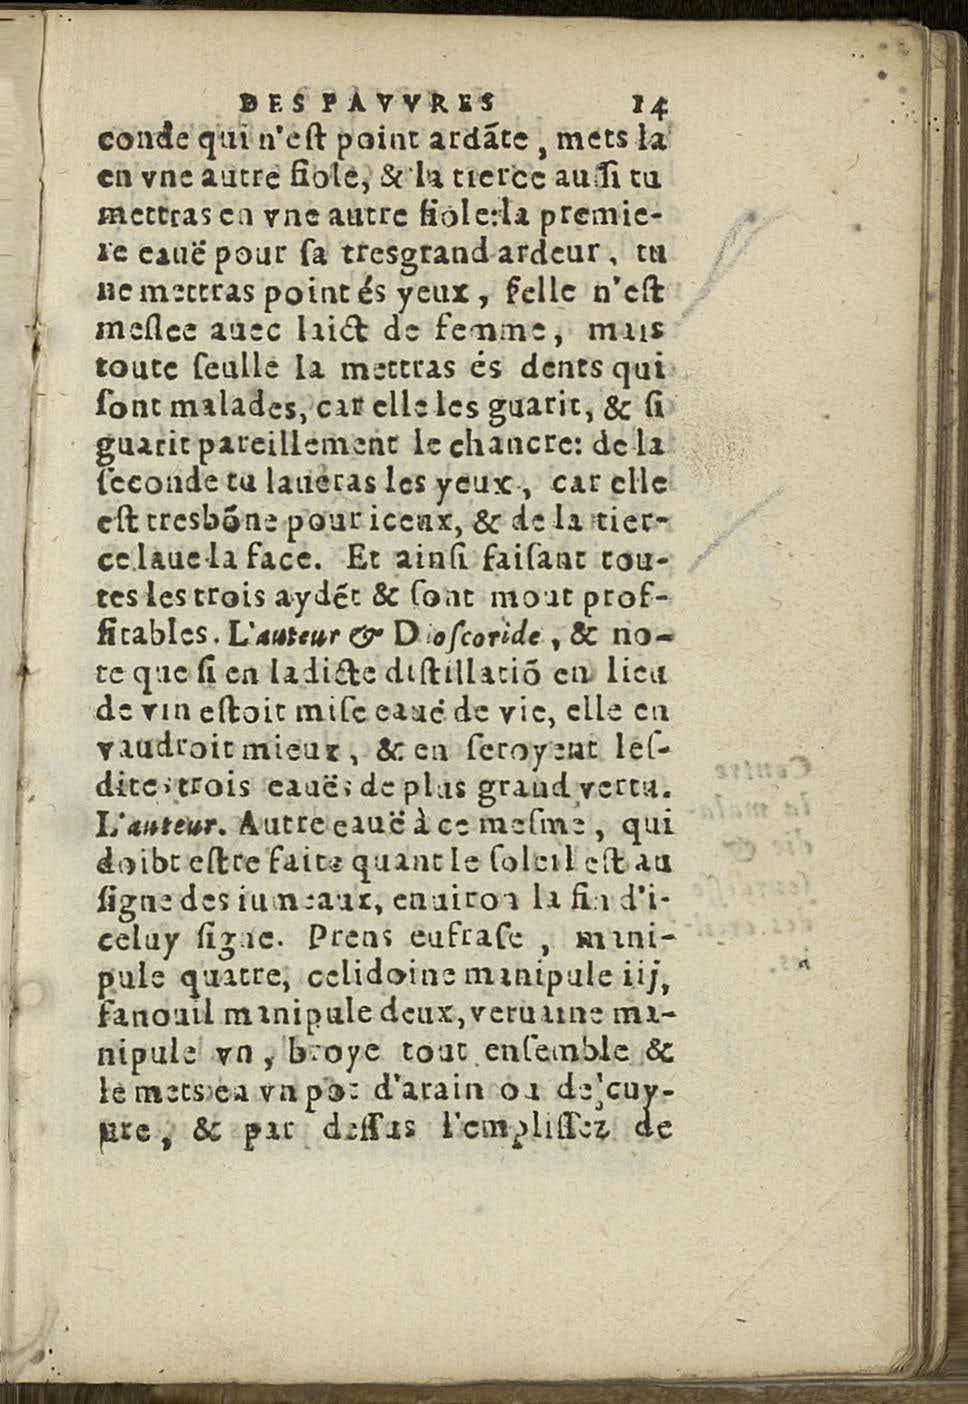 DES PAVVRES 14
conde qui n'eſt point ardãte, mets la
en vne autre fiole, & la tierce auſſi tu
mettras en vne autre fiole: la premie-
re eauë pour ſa tresgrand ardeur, tu
ne mettras point és yeux, ſelle n'eſt
meſlee auec laict de femme, mais
toute ſeulle la mettras és dents qui
ſont malades, car elle les guarit, & ſi
guarit pareillement le chancre: de la
ſeconde tu laueras les yeux, car elle
eſt tresbõne pour iceux, & de la tier-
ce laue la face. Et ainſi faiſant tou-
tes les trois aydẽt & ſont mout prof-
fitables. L'auteur & Dioſcoride, & no-
te que ſi en ladicte diſtillatiõ en lieu
de vin eſtoit miſe eauë de vie, elle en
vaudroit mieux, & en ſeroyent leſ-
dites trois eauës de plus grand vertu.
L'auteur. Autre eauë à ce meſme, qui
doibt eſtre faite quant le ſoleil eſt au
ſigne des iumeaux, enuiron la fin d'i-
celuy ſigne. Prens eufraſe, mani-
pule quatre, celidoine manipule iij,
fanouil manipule deux, veruaine ma-
nipule vn, broye tout enſemble &
le mets en vn pot d'arain ou de cuy-
ure, & par deſſus l'empliſſez de